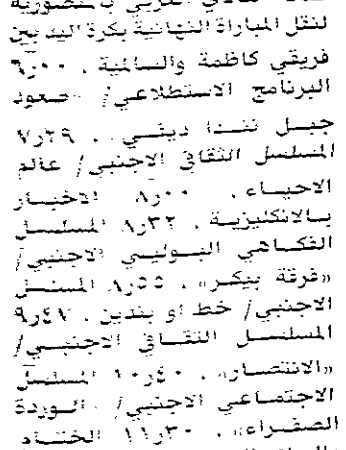 النادي العربي بالمنصورية
لنقل المباراة النهائية بكرة اليد بين
فريقي كاظمة والسالمية . ٦٫٠٠
البرنامج الاستطلاعي/ صعود
جبل نندا ديفي . ٧٫٢٩
المسلسل الثقافي الاجنبي/ عالم
الاحياء . ٨٫٠٠ الاخبار
بالانكليزية . ٨٫٣٢ المسلسل
الفكاهي البوليسي الاجنبي/
«فرقة بيكر» . ٨٫٥٥ المسلسل
الاجنبي/ خط او بندين . ٩٫٤٧
المسلسل الثقافي الاجنبي/
«الانتصار» . ١٠٫٤٠ المسلسل
الاجتماعي الاجنبي/ «الوردة
الصفراء» . ١١٫٣٠ الختام